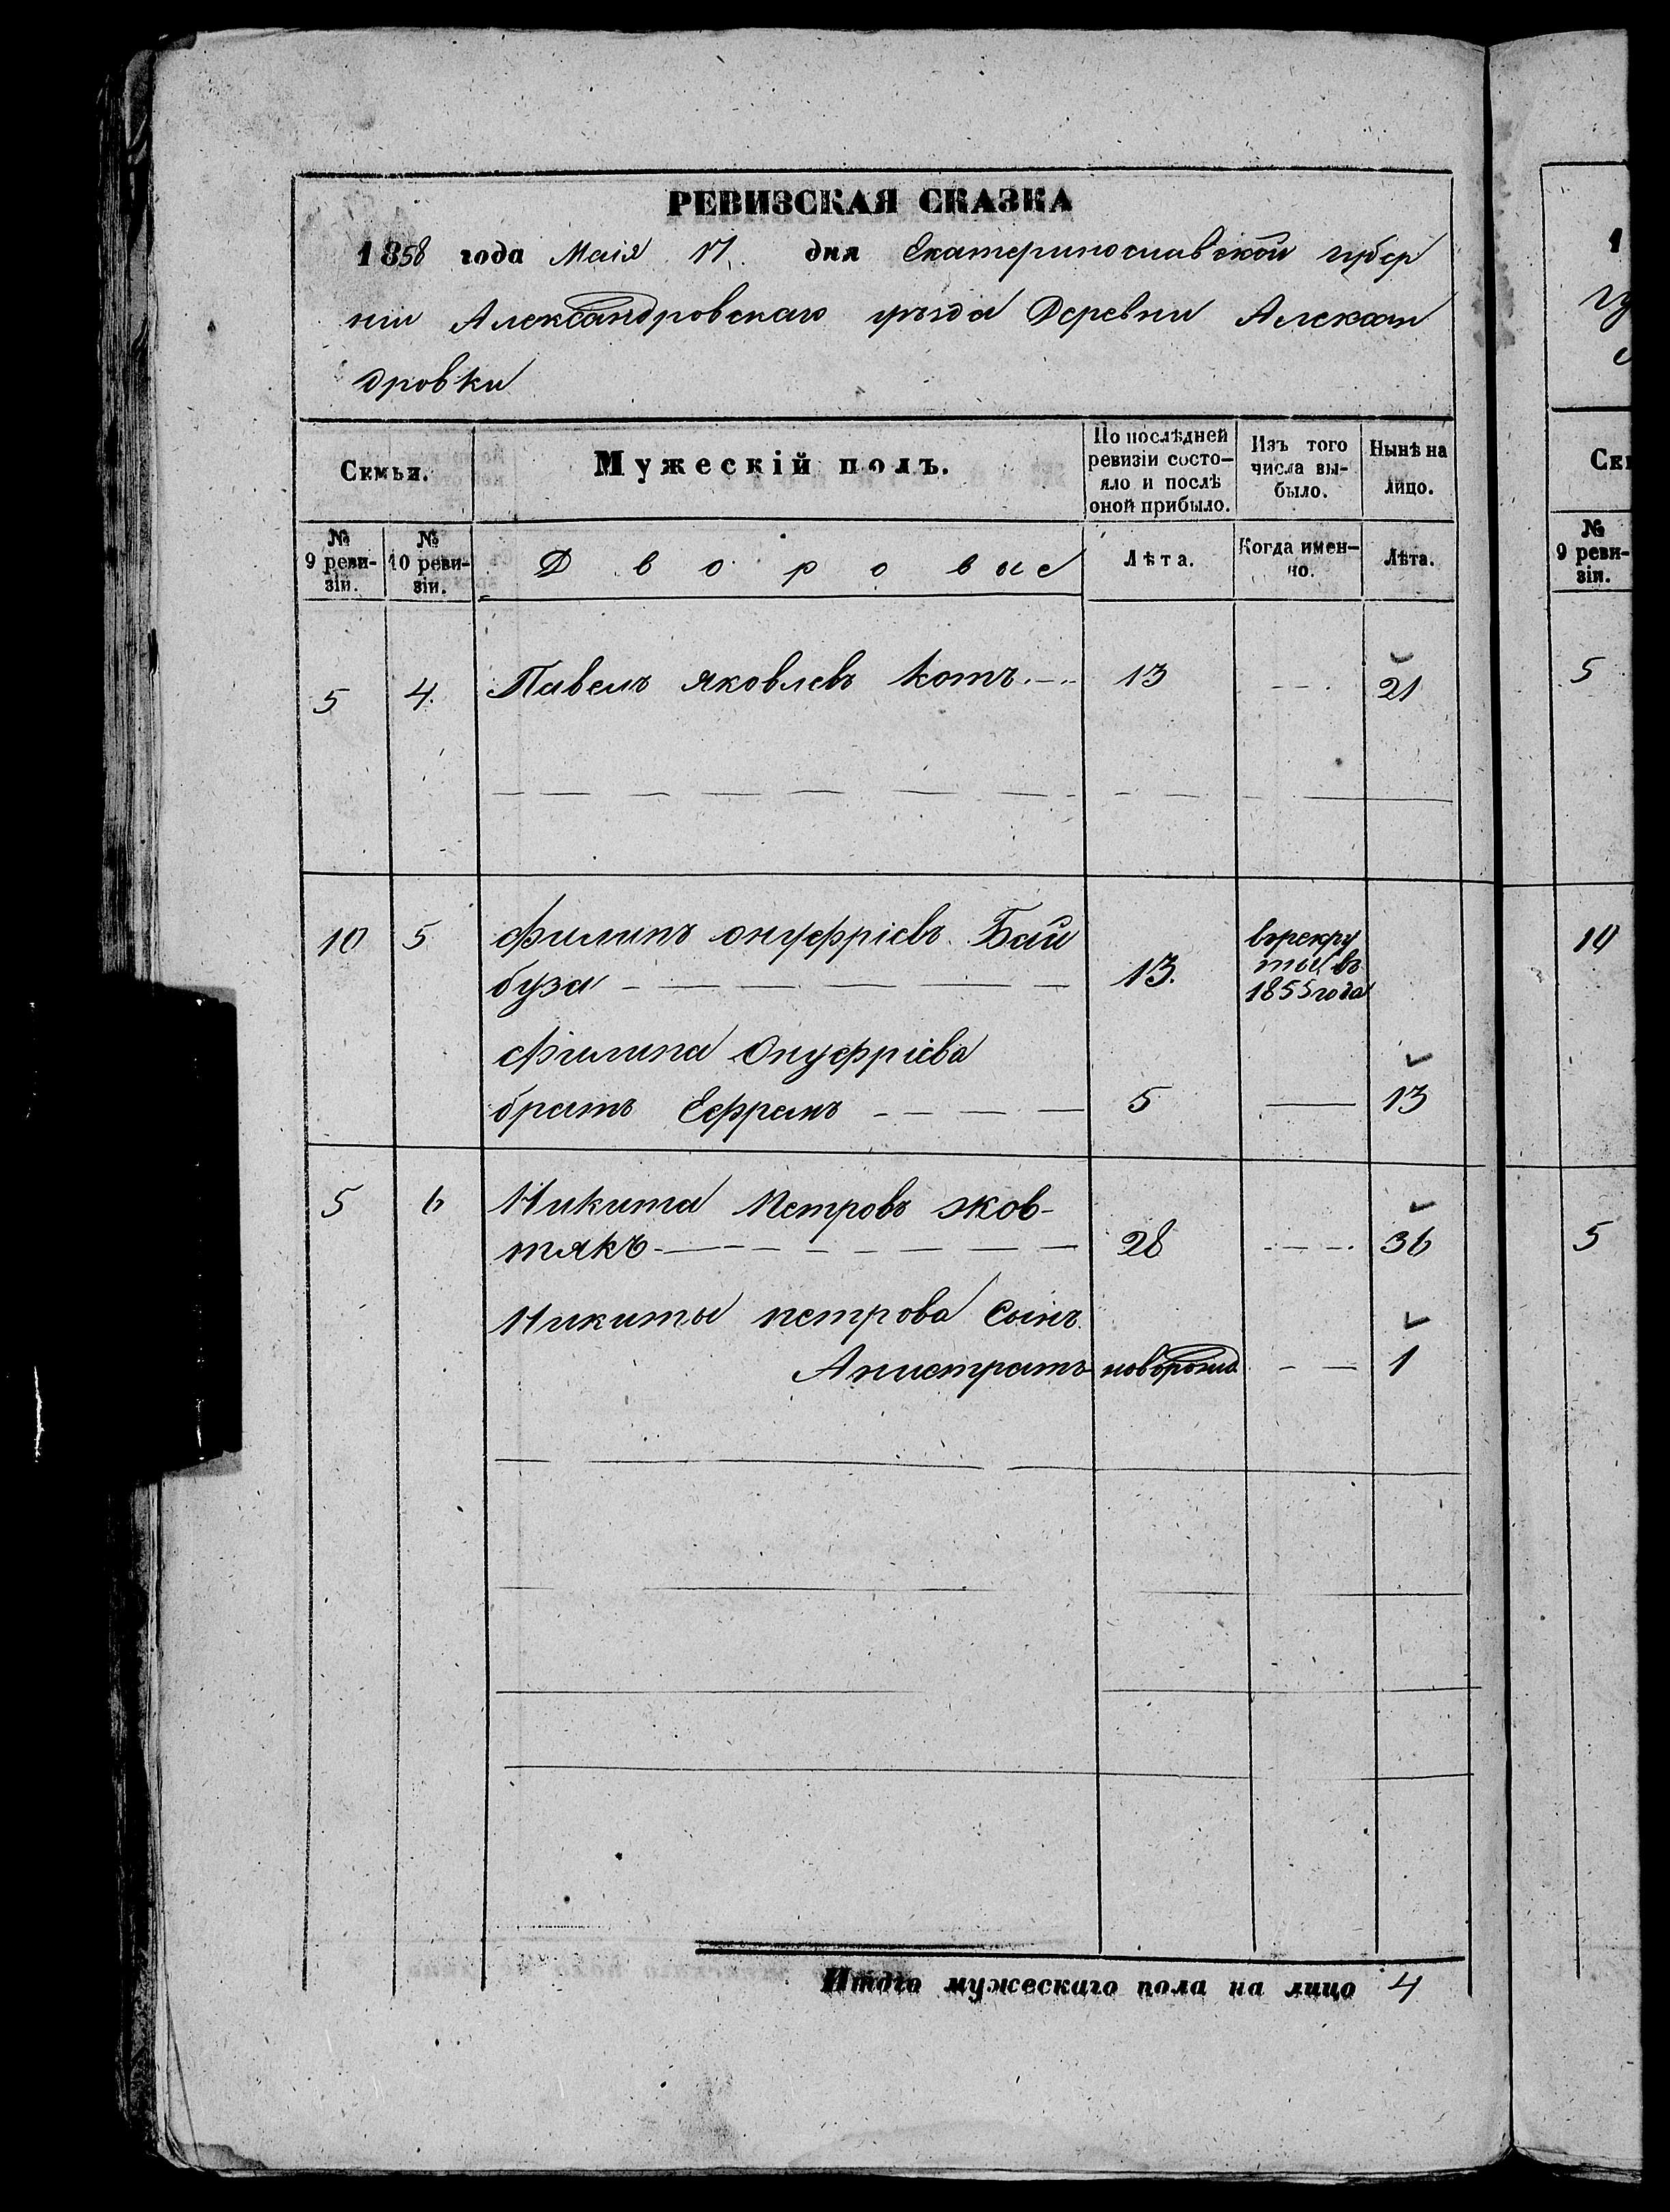 РЕВИЗСКАЯ СКАЗКА
1858 года Маія 17 дня Екатеринославской губер
ніи Александровскаго уѣзда Деревни Алексан
дровки
Семьи.
Мужескій полъ.
По послѣдней ревизіи состо-
яло и послѣ
оной прибыло.
Изъ того
числа вы-
было.
Нынѣ на
лицо.
№
9 реви-
зіи.
№
10 реви-
зіи.
Дворовые
Лѣта.
Когда имен-
но.
Лѣта.
5 4. Павелъ Яковлевъ Котъ 13 21
10 5 Филипъ Онуфріевъ Бай
буза 13.
въ рекру
ты въ
1855 года
Филипа Онуфріева
братъ Ефремъ 5 13
5 6 Никита Петровъ Жов-
тякъ 28 36
Никиты Петрова Сынъ
Анистратъ новорожд. 1
Итого мужескаго пола на лицо 4
1
гу
с
Се
№
9 реви-
зіи.
5
10
5